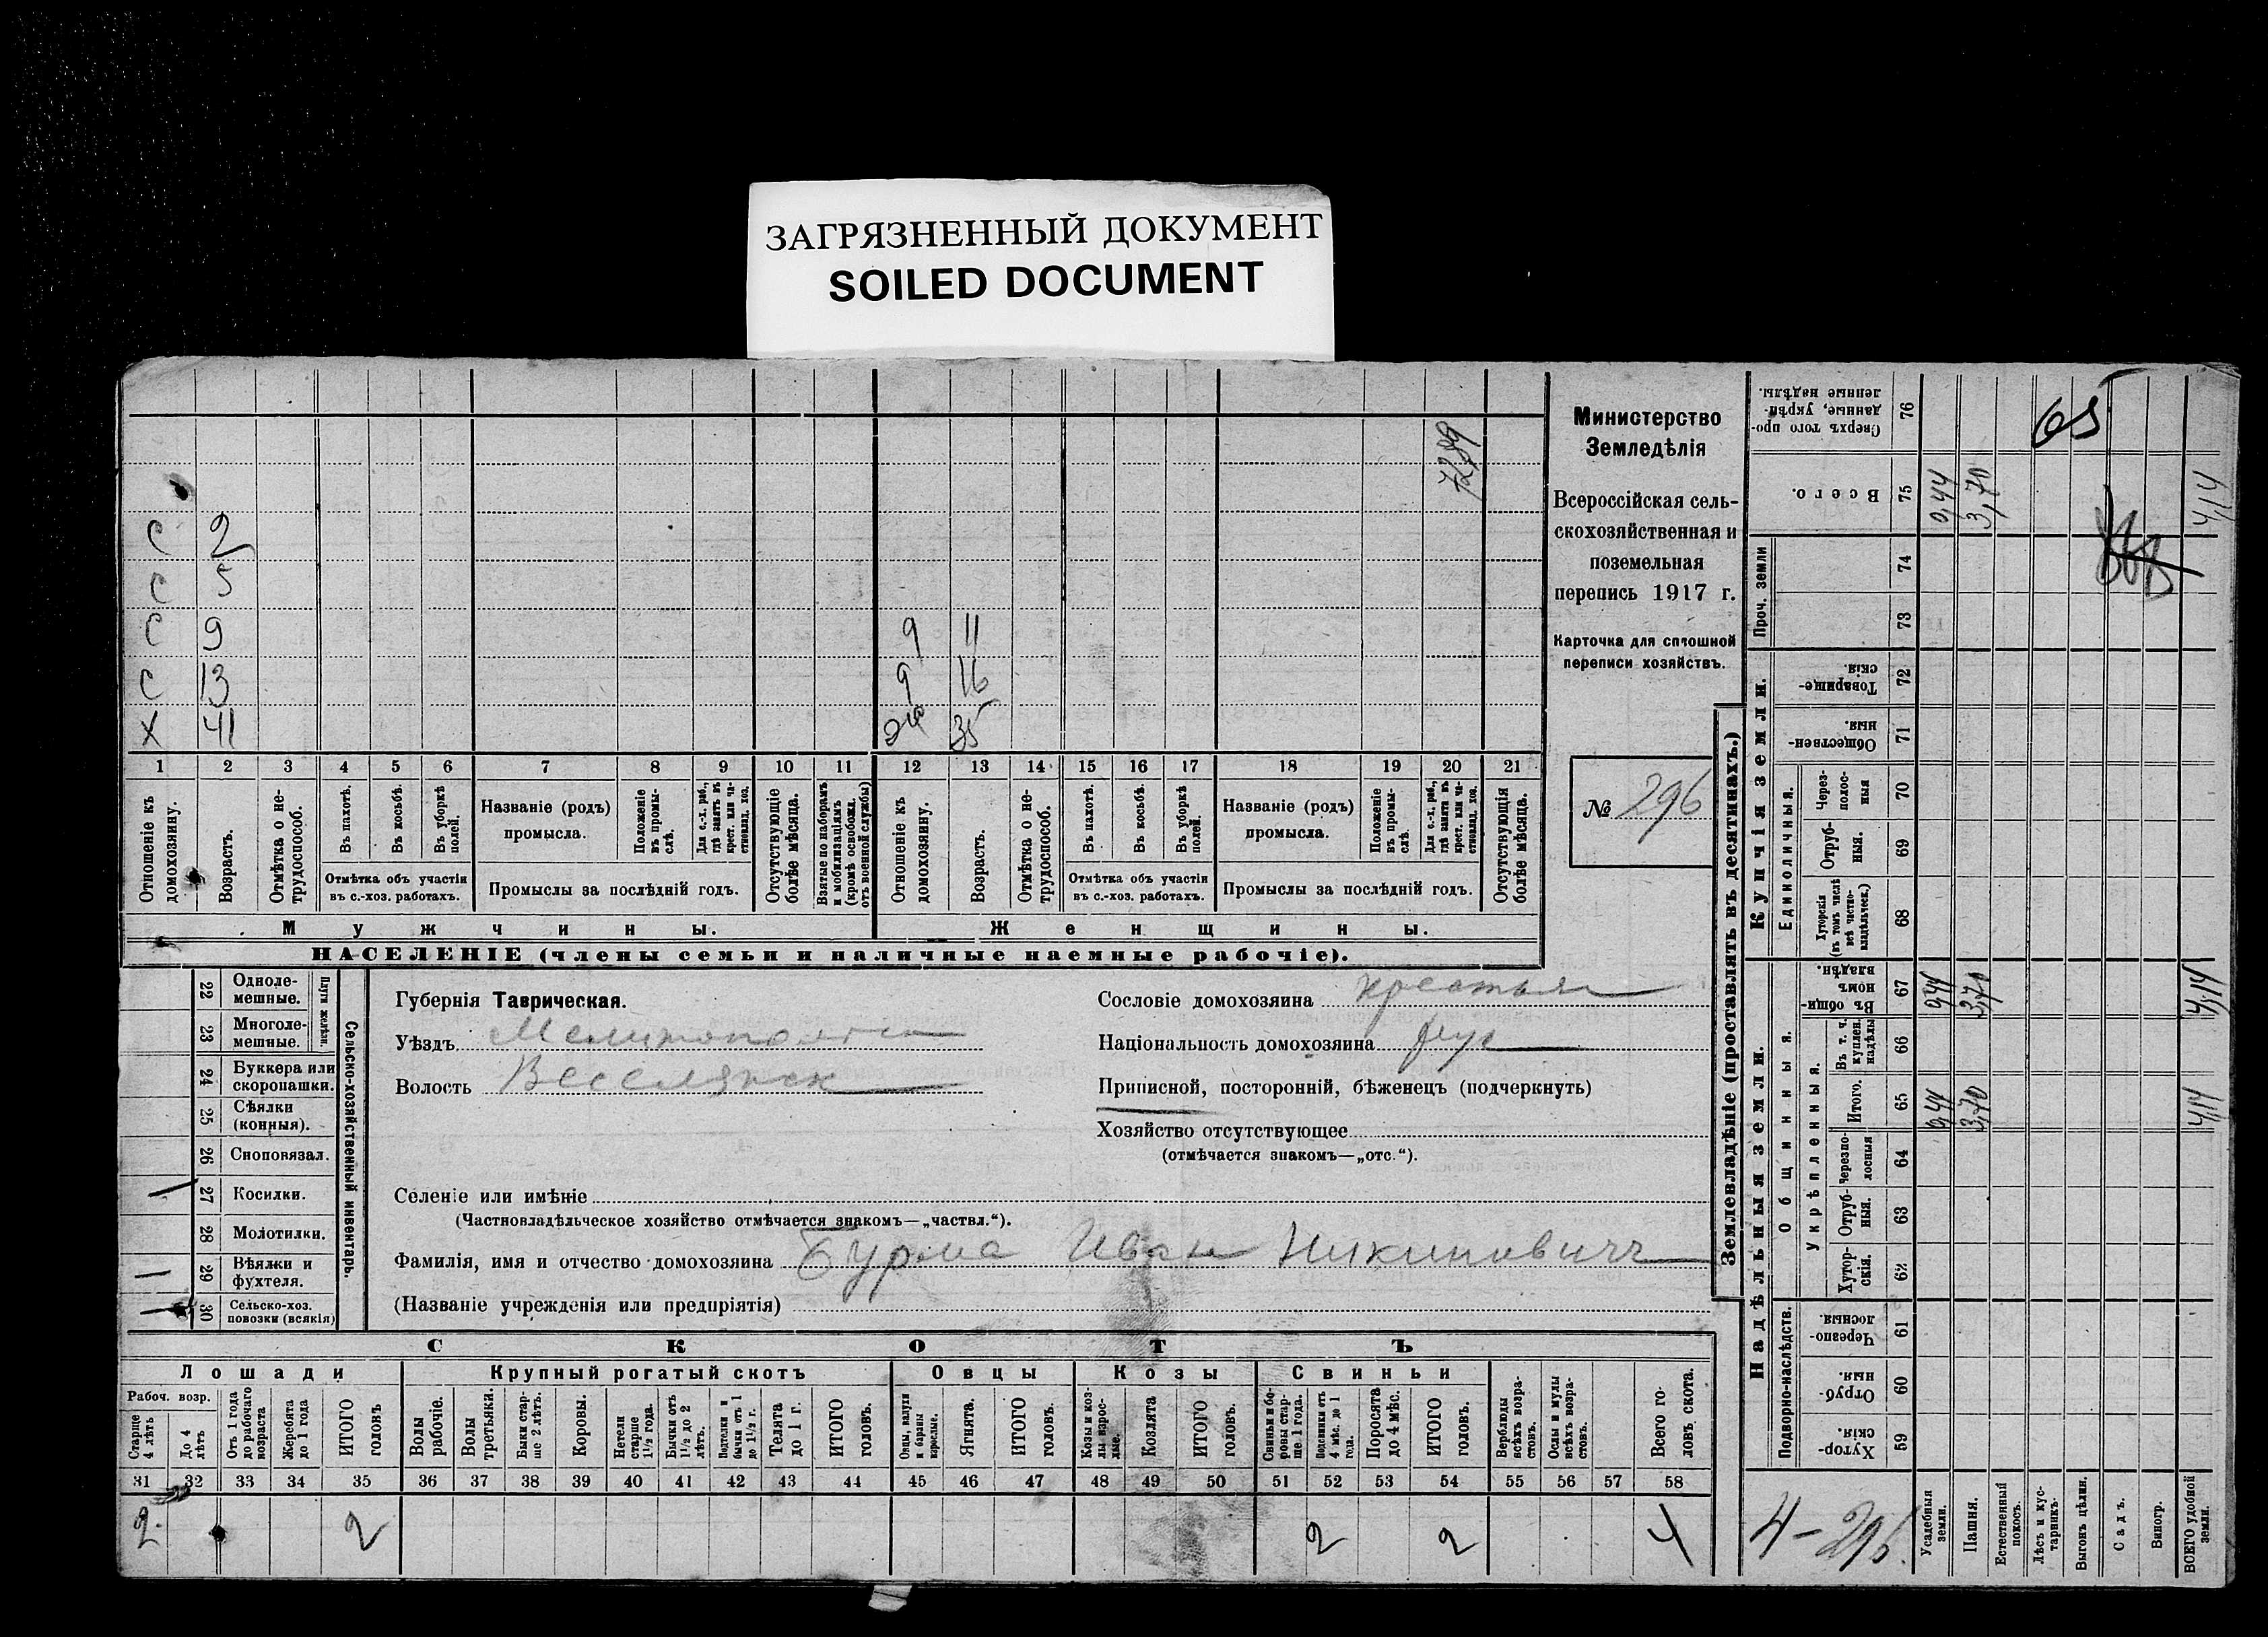 ЗАГРЯЗНЕННЫЙ ДОКУМЕНТ
SOILED DOCUMENT
Министерство
Земледѣлія
Всероссійская сель-
скохозяйственная и
поземельная
перепись 1917 г.
Карточка для сплошной
переписи хозяйствъ.
№ 296
С 2
С 5
С 9 9 11
С 13 9 16
Х 41 35
1 2 3 4 5 6 7 8 9 10 11 12 13 14 15 16 17 18 19 20 21
Отношеніе къ домохозяину.
Возрастъ.
Отмѣтка о не-трудоспособ.
Въ пахотѣ.
Въ косьбѣ.
Въ уборкѣ полей.
Отмѣтка объ участіи въ с.-хоз. работахъ.
Названіе (родъ) промысла.
Положеніе въ промы-слѣ.
Для с.-х. раб., гдѣ занятъ въ крест. или ча-стновлад. хоз.
Промыслы за послѣдній годъ.
Отсутствующіе болѣе мѣсяца.
Взятые по наборамъ и мобилизаціямъ (кромѣ освобожд. отъ военной службы)
Отношеніе къ домохозяину.
Возрастъ.
Отмѣтка о не-трудоспособ.
Въ пахотѣ.
Въ косьбѣ.
Въ уборкѣ полей.
Отмѣтка объ участіи въ с.-хоз. работахъ.
Названіе (родъ) промысла.
Положеніе въ промы-слѣ.
Для с.-х. раб., гдѣ занятъ въ крест. или ча-стновлад. хоз.
Промыслы за послѣдній годъ.
Отсутствующія болѣе мѣсяца.
Мужчины. Женщины.
НАСЕЛЕНІЕ (члены семьи и наличные наемные рабочіе).
22 Одноле-мешные.
23 Многоле-мешные.
Плуги желѣзн.
24 Буккера или скоропашки.
25 Сѣялки (конныя).
26 Сноповязал.
27 Косилки.
28 Молотилки.
29 Вѣялки и фухтеля.
30 Сельско-хоз. повозки (всякія)
Сельско-хозяйственный инвентарь.
Губернія Таврическая.
Уѣздъ Мелитопольск
Волость Веселянск
Сословіе домохозяина крестьян
Національность домохозяина рус
Приписной, посторонній, бѣженецъ (подчеркнуть)
Хозяйство отсутствующее
(отмѣчается знакомъ—„отс.“).
Селеніе или имѣніе
(Частновладѣльческое хозяйство отмѣчается знакомъ—„частвл.“).
Фамилія, имя и отчество домохозяина Бурма Иван Никипович
(Названіе учрежденія или предпріятія)
СКОТЪ
Лошади Крупный рогатый скотъ Овцы Козы Свиньи
Рабоч. возр.
Старше 4 лѣтъ
До 4 лѣтъ
Отъ 1 года до рабочаго возраста
Жеребята до 1 года
ИТОГО головъ
Волы рабочіе.
Волы третьяки.
Быки стар-ше 2 лѣтъ.
Коровы.
Нетели старше 1½ года.
Бычки отъ 1½ до 2 лѣтъ.
Подтелки и бычки отъ 1 до 1½ г.
Телята до 1 г.
ИТОГО головъ.
Овцы, валухи и бараны взрослые.
Ягнята.
ИТОГО головъ.
Козы и коз-лы взрос-лые.
Козлята
ИТОГО головъ.
Свиньи и бо-ровы стар-ше 1 года.
Подсвинки отъ 4 мѣс. до 1 года.
Поросята до 4 мѣс.
ИТОГО головъ.
Верблюды всѣхъ возра-стовъ.
Ослы и мулы всѣхъ возра-стовъ.
Всего го-ловъ скота.
31 32 33 34 35 36 37 38 39 40 41 42 43 44 45 46 47 48 49 50 51 52 53 54 55 56 57 58
2 2 2 2 4
Землевладѣніе (проставлять въ десятинахъ.)
Надѣльныя земли. Купчія земли.
Подворно-наслѣдств.
Общинныя.
Укрѣпленныя.
Единоличныя.
Проч. земли
Сверхъ того про-данные, укрѣп-ленные надѣлы. 76
Всего. 75 0,44 3,70 4,14
74
73
Товарище-скія. 72
Обществен-ныя. 71
Через-полос-ныя 70
Отруб-ныя. 69
Хуторскія (въ томъ числѣ всѣ частно-владѣльческ.) 68
Въ общин-номъ владѣн. 67 0,44 3,70 4,14
Въ т. ч. куплен. надѣлы 66
Итого. 65 0,44 3,70 4,14
Черезпо-лосныя 64
Отруб-ныя. 63
Хутор-скія. 62
Черезпо-лосныя. 61
Отруб-ныя. 60
Хутор-скія. 59
Усадебныя земли.
Пашня.
Естественный покосъ.
Лѣсъ и кус-тарникъ.
Выгонъ цѣлин.
Садъ.
Виногр.
ВСЕГО удобной земли.
65
4-296